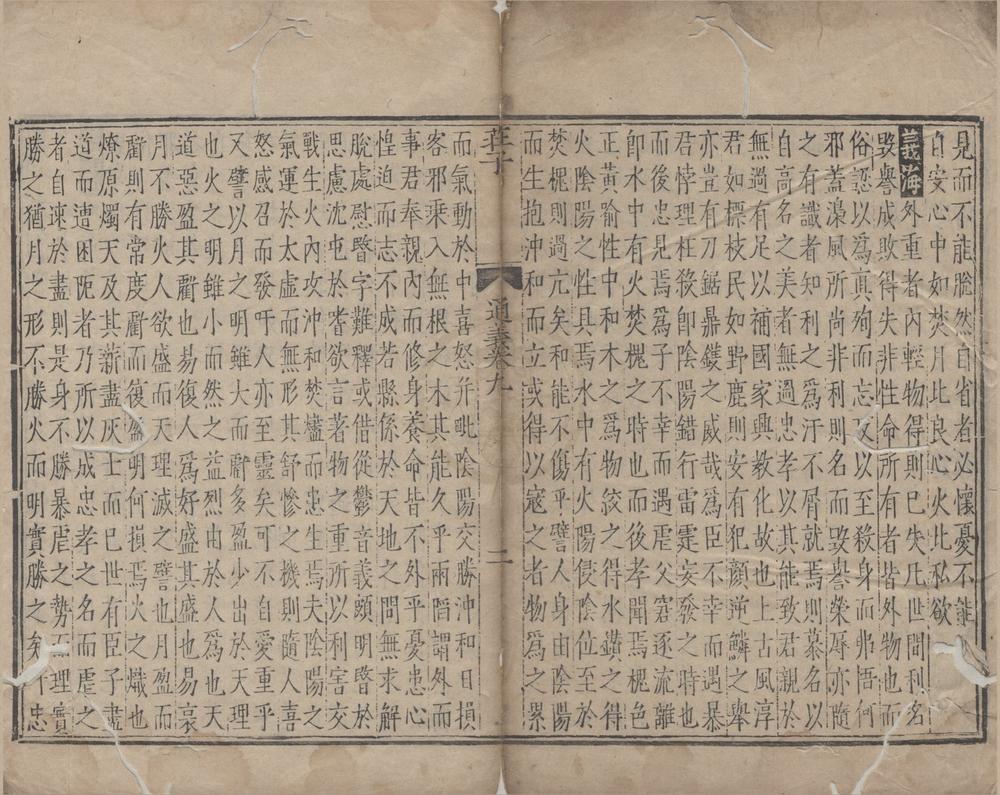 見而不能脫然自省者必懷憂不能
自安心中如焚月比良心火比私欲
義海外重者內輕物得則已失凡世間利名
毀譽成敗得失非性命所有者皆外物也而
俗認以為真殉而忘反以至殺身而弗悟何
邪蓋澡風所尚非利則名而毀譽榮辱亦隨
之有識者知利之為汙不屑就焉則慕名以
自高名之美者無過忠孝以其能致君親於
無過有足以補國家興教化故也上古風淳
君如標枝民如野鹿則安有犯顏逆鱗之舉
亦豈有刀鋸鼎鑊之威哉為臣不幸而遇暴
君悖理枉殺卽陰陽錯行雷霆妄發之時也
而後忠見焉為子不幸而遇虐父窘逐流離
卽水中有火焚槐之時也而後孝聞焉槐色
正黃喻性中和木之為物絞之得水鑽之得
火陰陽之性具焉水中有火陽侵陰位至於
焚槐則過亢矣和能不傷乎譬人身由陰陽
而生抱沖和而立或得以寇之者物為之累
莊子 通義卷九 二
而氣動於中喜怒幷毗陰陽交勝沖和日損
客邪乘入無根之木其能久乎兩陷謂外而
事君奉親內而修身養命皆不外乎憂患心
惶迫而志不成若懸係於天地之間無求解
脫處慰暋字難釋或借從鬱音義頗明暋於
思慮沈屯於嗜欲言著物之重所以利害交
戰生火內攻沖和焚爐而患生焉夫陰陽之
氣運於太虛而無形其舒慘之機則隨人喜
怒感召而發吁人亦至靈矣可不自愛重乎
又譬以月之明雖大而虧多盈少出於天理
也火之明雖小而然之益烈由於人為也天
道惡盈其虧也易復人為好盛其盛也易衰
月不勝火人欲盛而天理滅之譬也月盈而
虧則有常度虧而復盈明何損焉火之熾也
燎原燭天及其薪盡灰士而已世有臣子盡
道而遭困阨者乃所以成忠孝之名而虐之
者自速於盡則是身不勝暴虐之勢而理實
勝之猶月之形不勝火而明實勝之矣忠